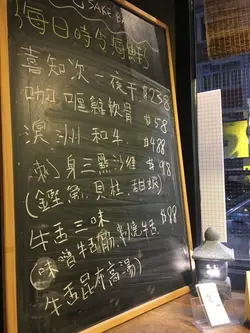 SAKE BAR
海日時令海鮮
喜知次一夜干 $238
咖喱雞軟骨 $58
澳洲和牛 $488
刺身三點沙律 $98
(鰹魚,貝柱,甜蝦)
牛舌三味 $88
(味噌牛舌筋,刺燒牛舌,
牛舌昆布高湯)